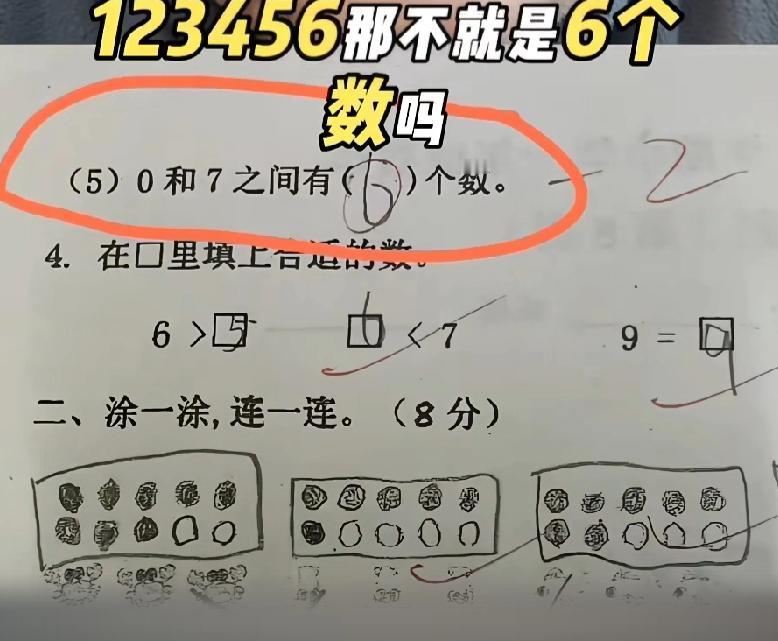 123456那不就是6个
数吗
（5）0和7之间有(6)个数。 -2
4. 在□里填上合适的数。
6 > 5 6 < 7 9 = 9
二、涂一涂,连一连。（8分）